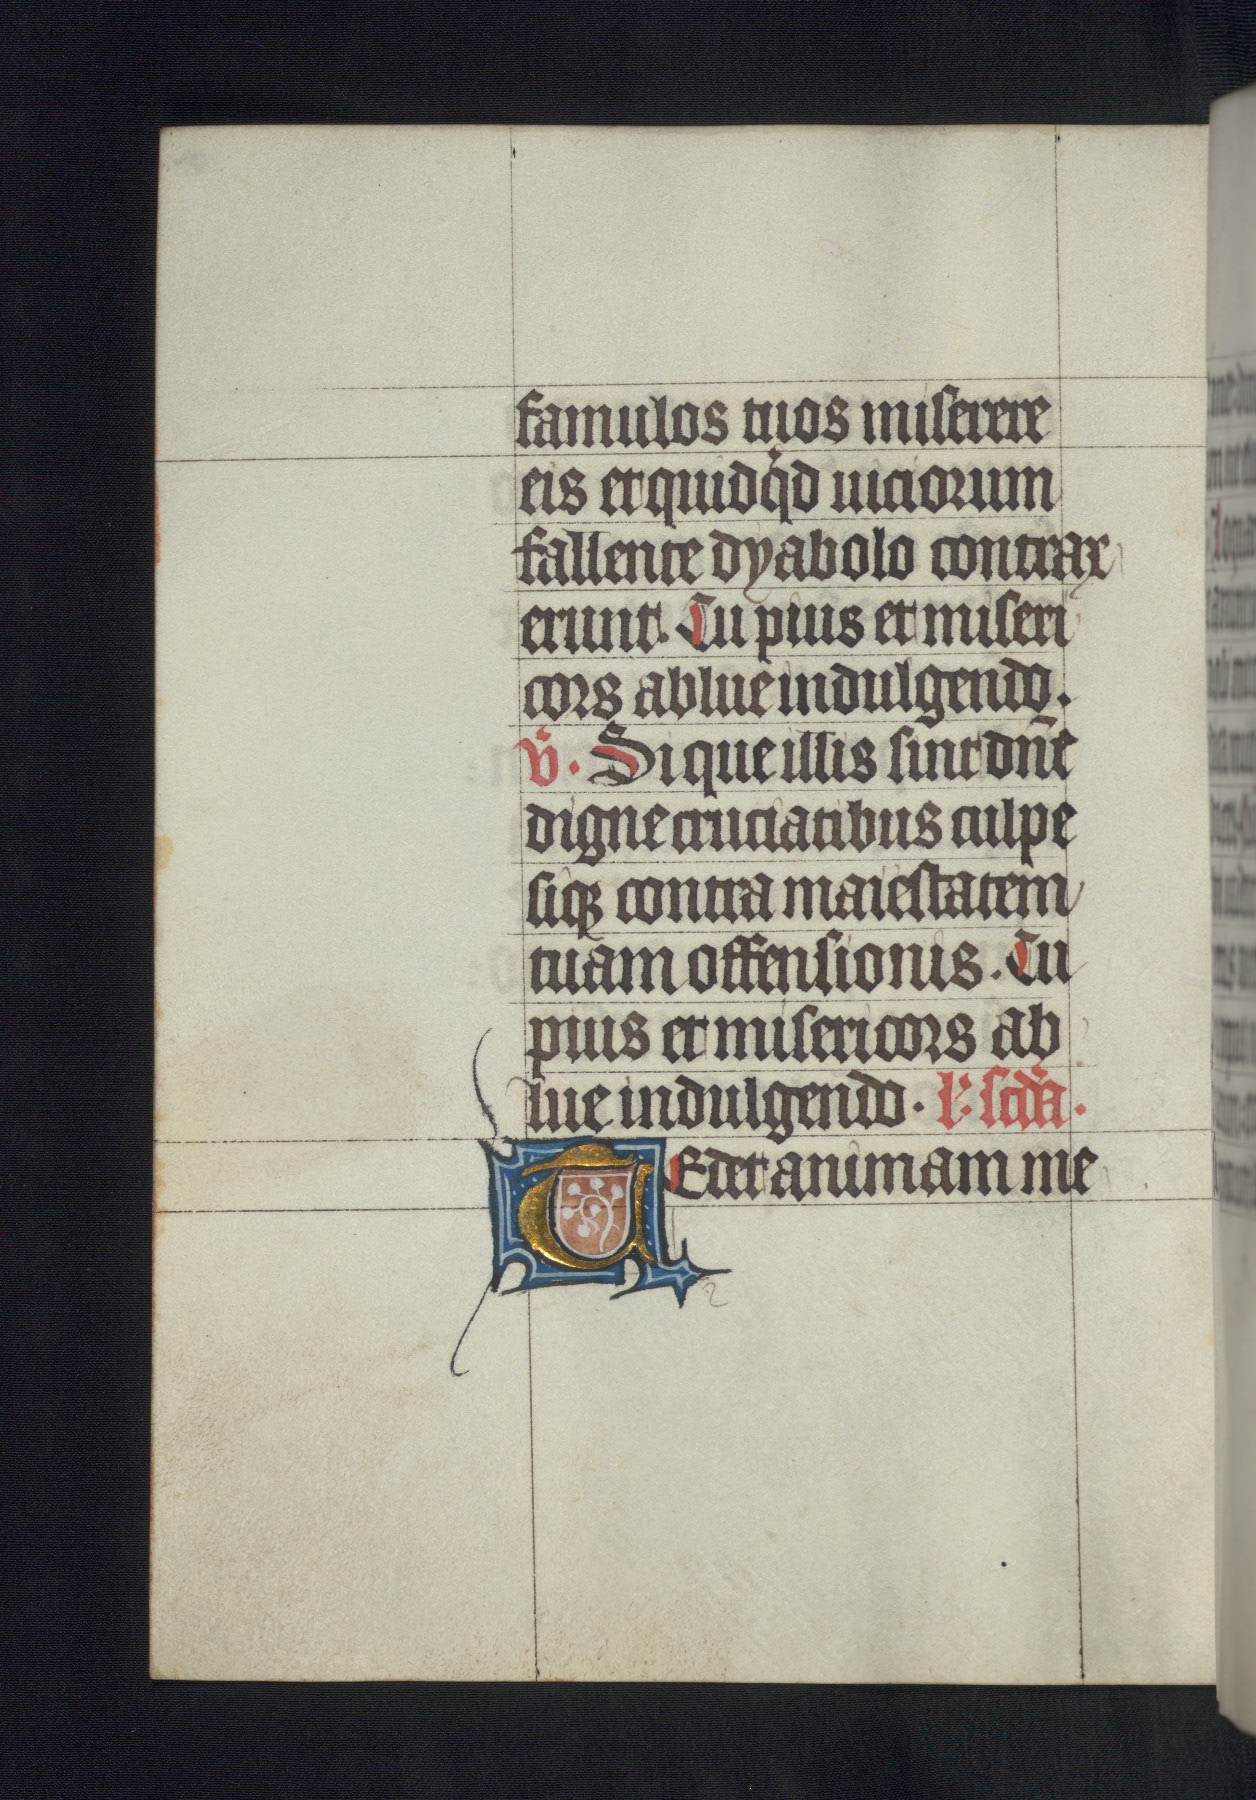 famulos tuos miserere
eis et quidq̇d uiciorum
fallente dyabolo contrax
erunt. Tu pius et miseri
cors ablue indulgendo.
v̄. Si que illis sint dn̄e
digne cruciatibus culpe
siq; contra maiestatem
tuam offensionis. Tu
pius et misericors ab
lue indulgendo. l'. scd̄a.
TEdet animam me